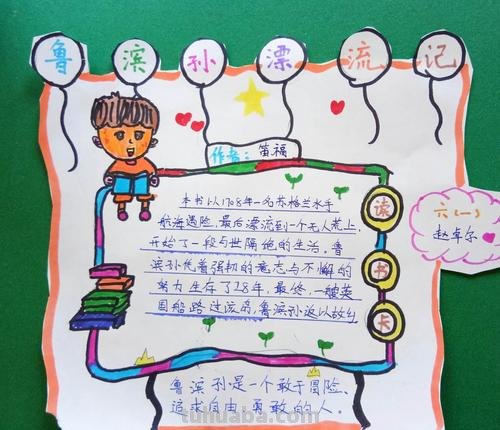 鲁滨孙漂流记
作者：笛福
本书以1708年一名苏格兰水手
航海遇险，最后漂流到一个无人荒上
开始了一段与世隔绝的生活，鲁
滨孙凭着强韧的意志与不懈的
努力生存了28年，最终，一艘英
国船路过该岛，鲁滨孙返以故乡
读书卡
六（一）
赵卓尔
鲁滨孙是一个敢于冒险、
追求自由、勇敢的人.
tuhuaba.com